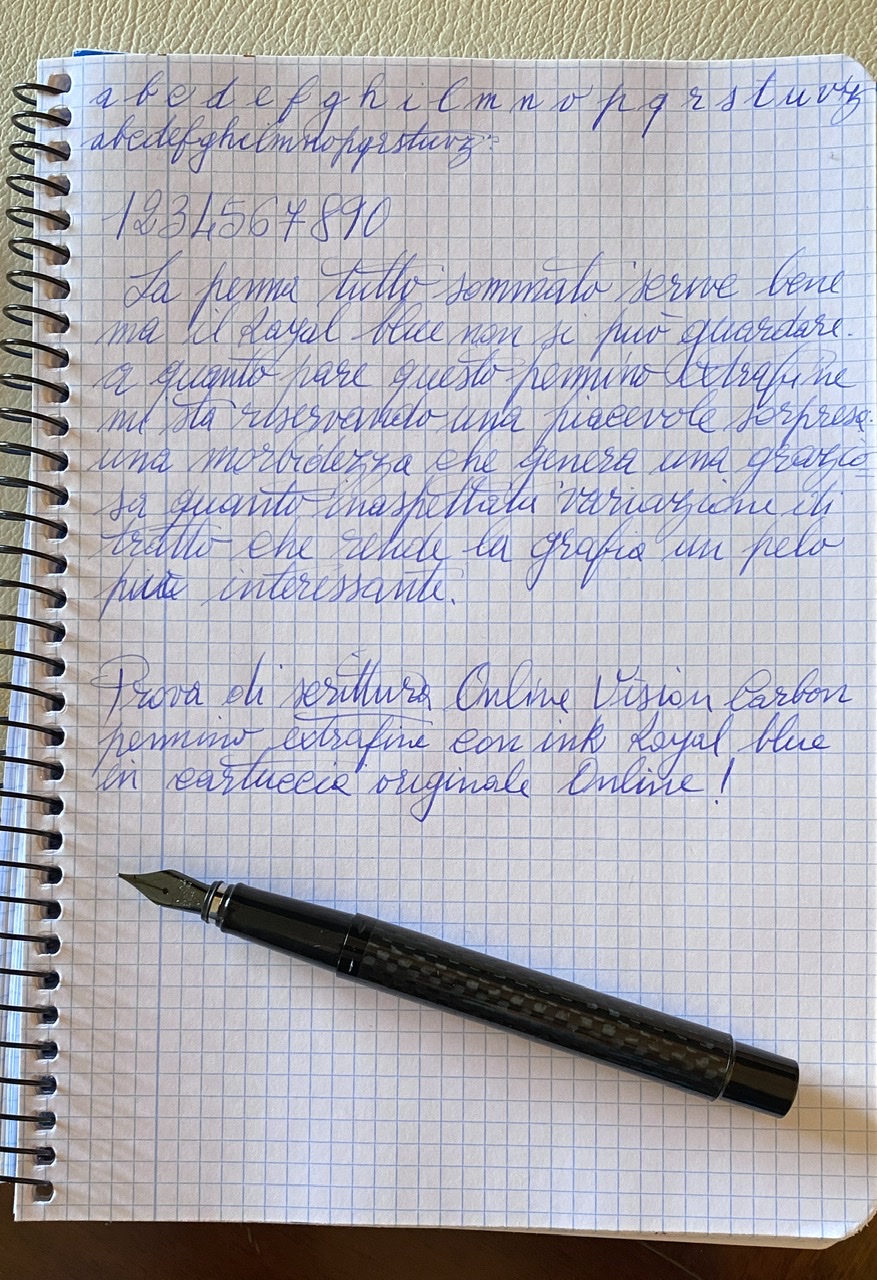 a b c d e f g h i l m n o p q r s t u v z
abcdefghilmnopqrstuvz
1234567890
La penna tutto sommato scrive bene
ma il Royal blue non si può guardare.
a quanto pare questo pennino extrafine
mi sta riservando una piacevole sorpresa:
una morbidezza che genera una grazio=
sa quanto inaspettata variazione di
tratto che rende la grafia un pelo
più interessante.
Prova di scrittura Online Vision Carbon
pennino extrafine con ink Royal blue
in cartuccia originale Online!